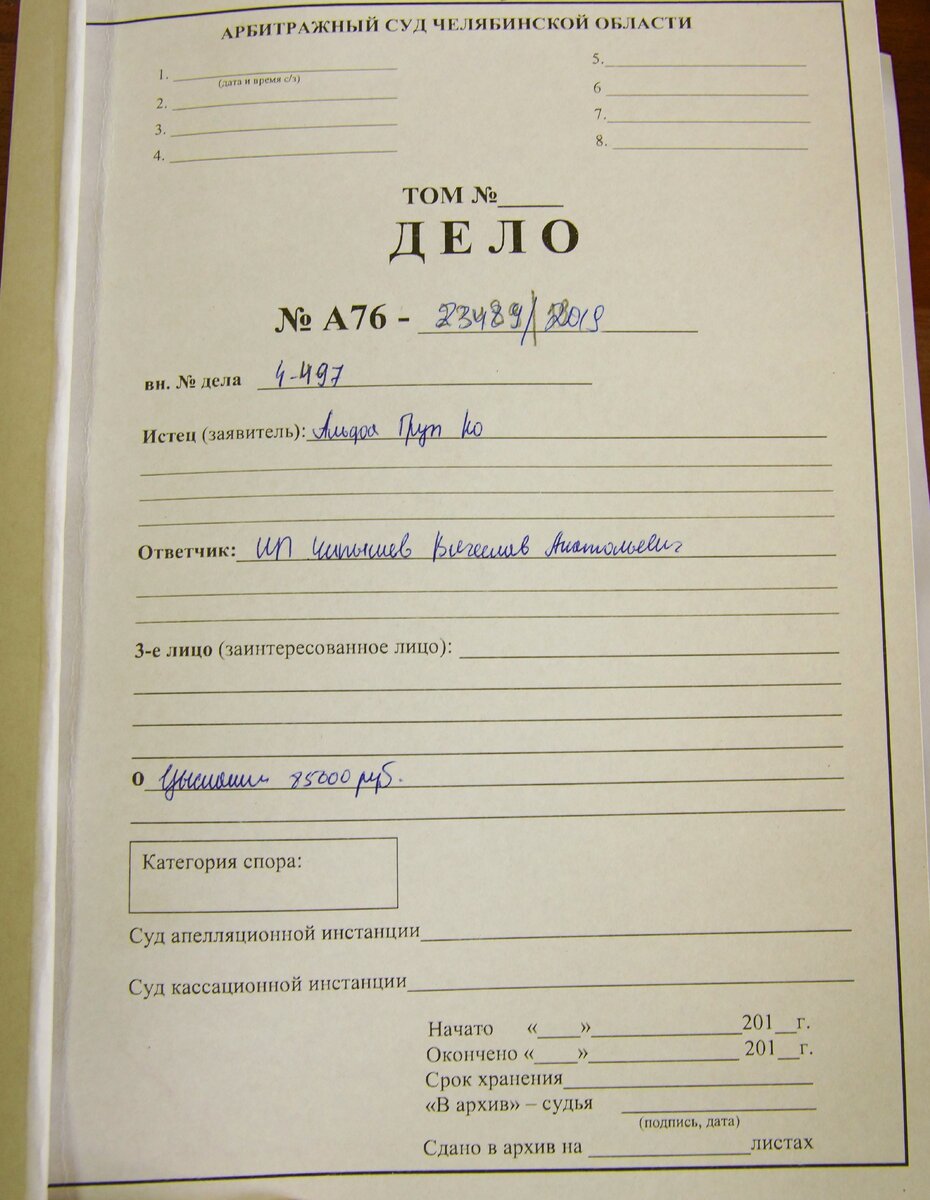 АРБИТРАЖНЫЙ СУД ЧЕЛЯБИНСКОЙ ОБЛАСТИ
1.
(дата и время с/з)
2.
3.
4.
5.
6
7.
8.
ТОМ №
ДЕЛО
№ А76 - 23489/2019
вн. № дела 4-497
Истец (заявитель): Альфа Груп Ко
Ответчик: ИП Вячеслав Анатольевич
3-е лицо (заинтересованное лицо):
О 85000 руб.
Категория спора:
Суд апелляционной инстанции
Суд кассационной инстанции
Начато « » 201 г.
Окончено « » 201 г.
Срок хранения
«В архив» – судья
(подпись, дата)
Сдано в архив на листах